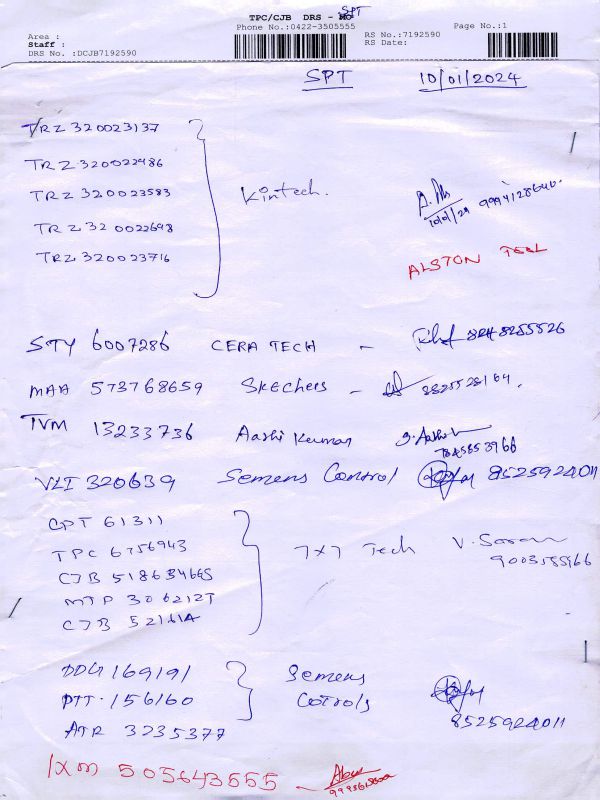 TPC/CJB DRS - SPT
Phone No.:0422-3505555
Page No.:1
Area :
RS No.:7192590
Staff :
RS Date:
DRS No. :DCJB7192590
SPT 10/01/2024
TRZ 320023137
TRZ 320022486
TRZ 320023583
Kintech.
TRZ 320022698
10/01/24
TRZ 320023716
ALSTON
STY 6007286 CERA TECH -
MAA 573768659 Skechers -
TVM 13233736 Aashi Kumar
VLI 320639 Semens Control 8525924011
CPT 61311
TPC 6756943 7x7 Tech V. Saran
CJB 518634665
MTP 306212T
CJB
DDG 169191 Semens
PTT. 156160 Cotrols
8525924011
ATR 3235377
IXM 505643555 -